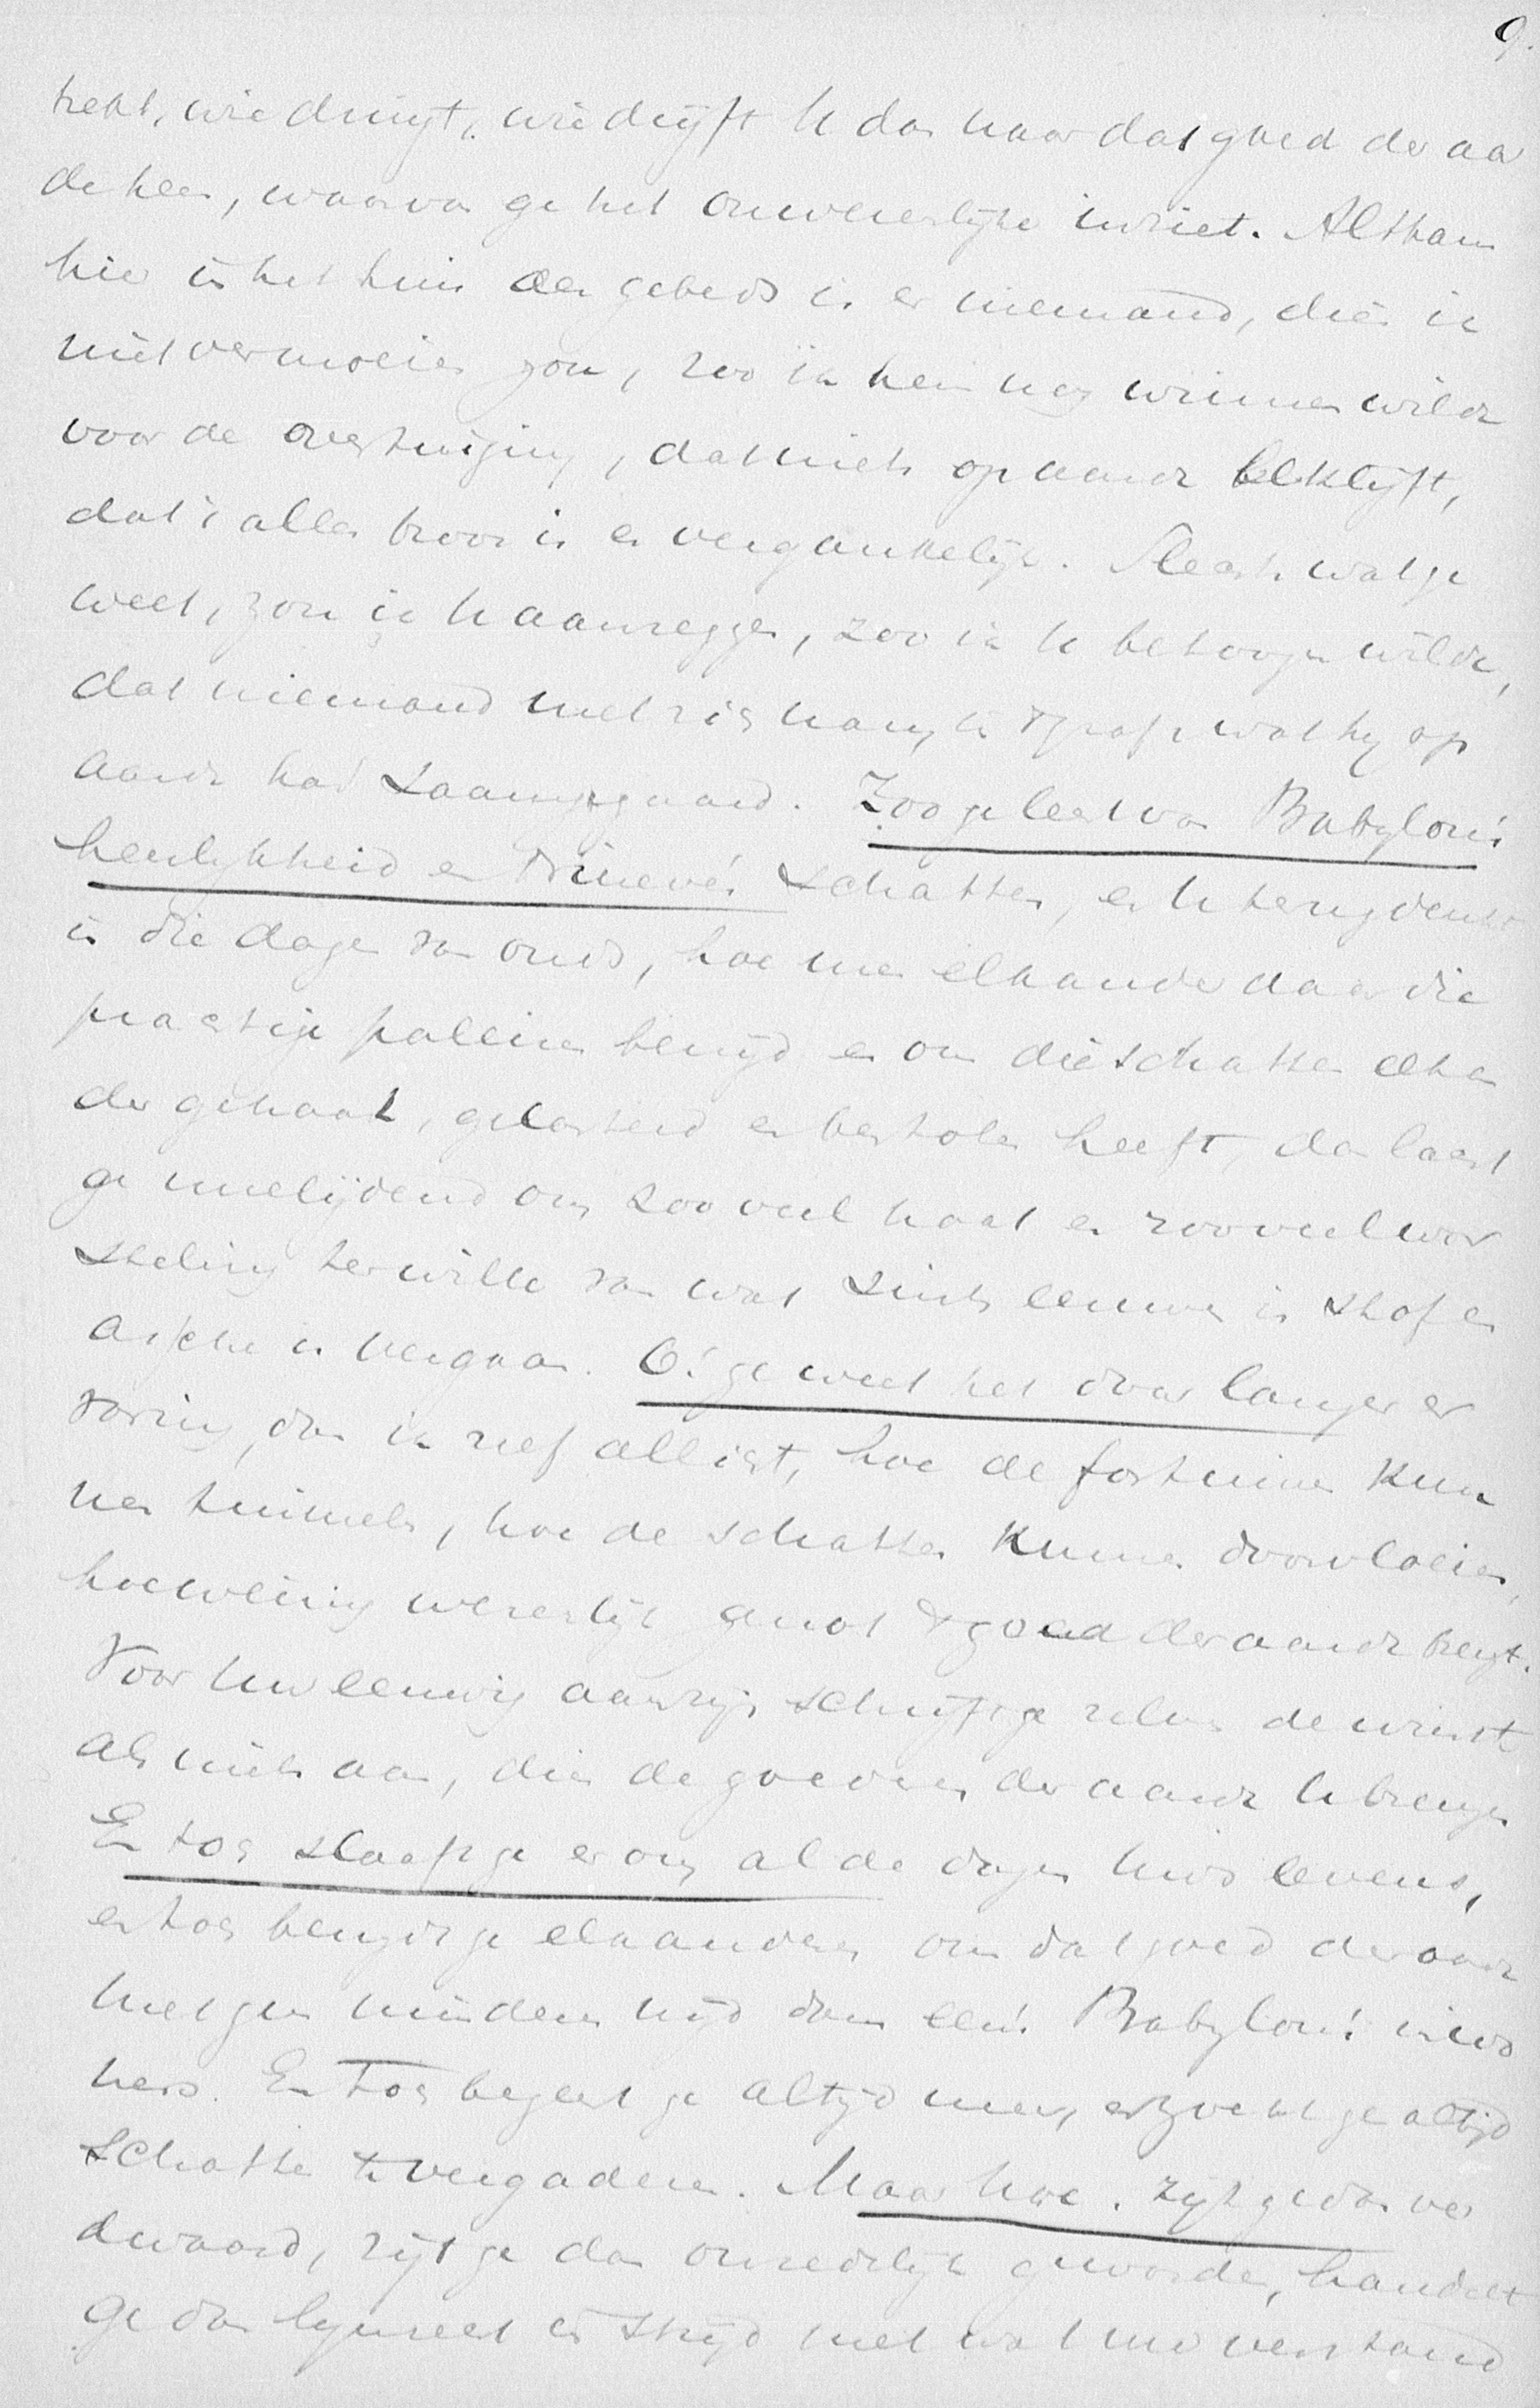 9.
trekt, wie dringt, wie drijft U dan naar dat goed der aar
de heen, waarvan ge het onwezenlijke inziet. Althans
hier in het huis des gebeds is er niemand, dien ik
niet vermoeien zou, zoo ik hem nog winnen wilde
voor de overtuiging, dat niets op aarde beklijft,
dat 't alles broos is en vergankelijk. Slechts wat ge
weet, zou ik U aanzeggen, zoo ik U betoogen wilde,
dat niemand met zich nam, in 't graf, wat hij op
aarde had saamgegaard. Zoo ge leest van Babylon's
heerlijkheid en Ninevé's schatten, en U terugdenkt
in die dagen van ouds, hoe men elkander daar die
prachtige paleizen benijd en om die schatten elkan
der gehaat, gelasterd en bestolen heeft, dan lacht
ge medelijdend om zooveel haat en zooveel wor
steling ter wille van wat sinds eeuwen in stof en
assche is vergaan. O! ge weet het door langer er
varing, dan ik zelf allicht, hoe de fortuinen kun
nen tuimelen, hoe de schatten kunnen doorvloeien,
hoe weinig wezenlijk genot 't goed der aarde brengt.
Voor Uw eeuwig aanzijn schrijft ge zelven de winst
als niets aan, dien de goederen der aarde U brengen
En toch slaaft ge er om al de dagen Uws levens,
en toch benijdt ge elkanderen om dat goed der aarde
met geen minderen nijd dan eens Babylon's inwo
ners. En toch begeert ge altijd meer, en zoekt ge altijd
schatten te vergaderen. Maar hoe, zijt ge dan ver
dwaasd, zijt ge dan onredelijk geworden, handelt
ge dan lijnrecht in strijd met wat uw verstand